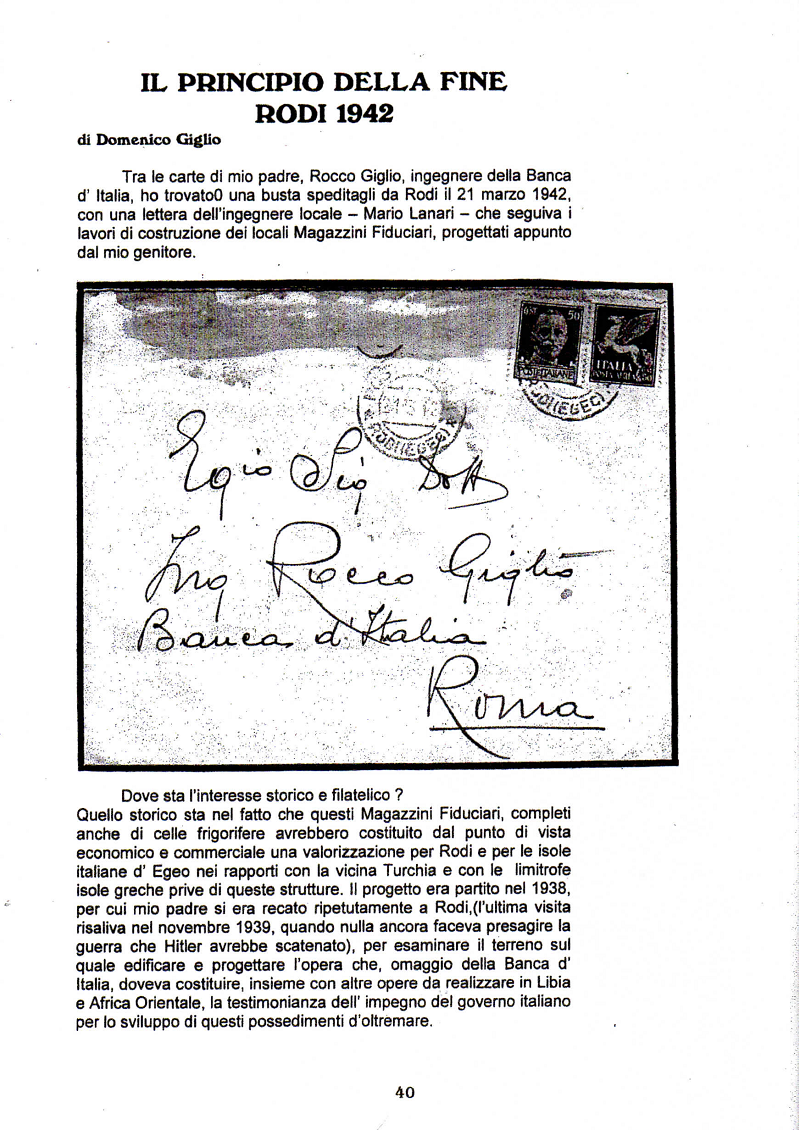 IL PRINCIPIO DELLA FINE
RODI 1942
di Domenico Giglio
Tra le carte di mio padre, Rocco Giglio, ingegnere della Banca
d' Italia, ho trovato0 una busta speditagli da Rodi il 21 marzo 1942,
con una lettera dell'ingegnere locale – Mario Lanari – che seguiva i
lavori di costruzione dei locali Magazzini Fiduciari, progettati appunto
dal mio genitore.
50
POSTE ITALIANE
ITALIA
RODI (EGEO)
RODI (EGEO)
Egio Sig Dott
Ing Rocco Giglio
Banca d'Italia
Roma
Dove sta l'interesse storico e filatelico ?
Quello storico sta nel fatto che questi Magazzini Fiduciari, completi
anche di celle frigorifere avrebbero costituito dal punto di vista
economico e commerciale una valorizzazione per Rodi e per le isole
italiane d' Egeo nei rapporti con la vicina Turchia e con le limitrofe
isole greche prive di queste strutture. Il progetto era partito nel 1938,
per cui mio padre si era recato ripetutamente a Rodi,(l'ultima visita
risaliva nel novembre 1939, quando nulla ancora faceva presagire la
guerra che Hitler avrebbe scatenato), per esaminare il terreno sul
quale edificare e progettare l'opera che, omaggio della Banca d'
Italia, doveva costituire, insieme con altre opere da realizzare in Libia
e Africa Orientale, la testimonianza dell' impegno del governo italiano
per lo sviluppo di questi possedimenti d'oltremare.
40